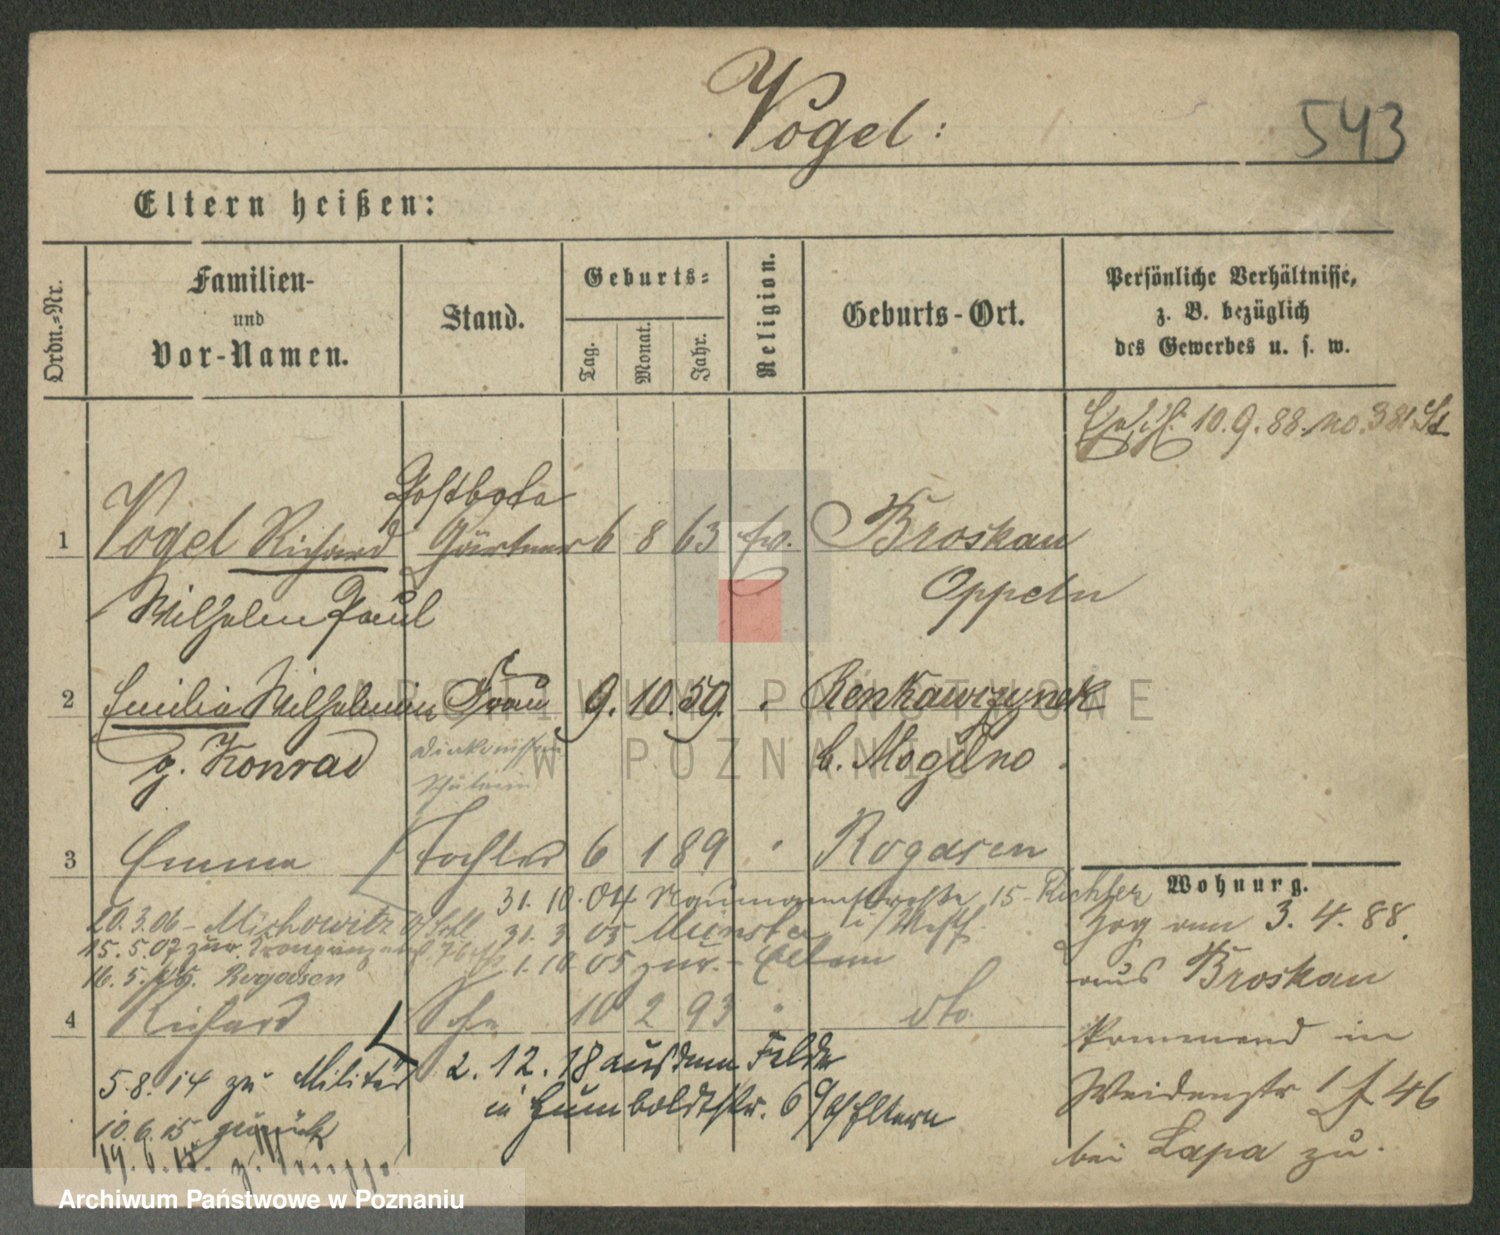 Vogel:
543
Eltern heißen:
Ordn.=Nr.
Familien-
und
Vor-Namen.
Stand.
Geburts=
Tag.
Monat.
Jahr.
Religion.
Geburts-Ort.
Persönliche Verhältnisse,
z. B. bezüglich
des Gewerbes u. s. w.
10.9.88. no. 381.
Postbote
1 Vogel Richard Gärtner 6 8 63 ev. Broskau
Wilhelm Paul Oppeln
2 Emilie Wilhelmine Frau 9. 10. 59. " Renkawczynek
g. Konrad b. Mogilno
Diakonissen
schülerin
3 Emma Tochter 6 1 89 " Rogasen
Wohnung.
31. 10. 04 Naumannstraße 15 - Richter
20.3.06 - Michowitz O/Schl
31. 3 05 Münster i/Westf.
15.5.07 zur.
1. 10 05 zur. - Eltern
16. 5. Rogasen
4 Richard Sohn 10 2 93 " dto.
5.8.14 zu Militär
2. 12. 18 aus dem Felde
in Humboldtstr. 6 Eltern
10.6.15 zurück
19.6.15. z.
Zog am 3. 4. 88.
aus Broskau
kommend in
Weidenstr 46
bei Lapa zu.
ARCHIWUM PAŃSTWOWE
W POZNANIU
Archiwum Państwowe w Poznaniu